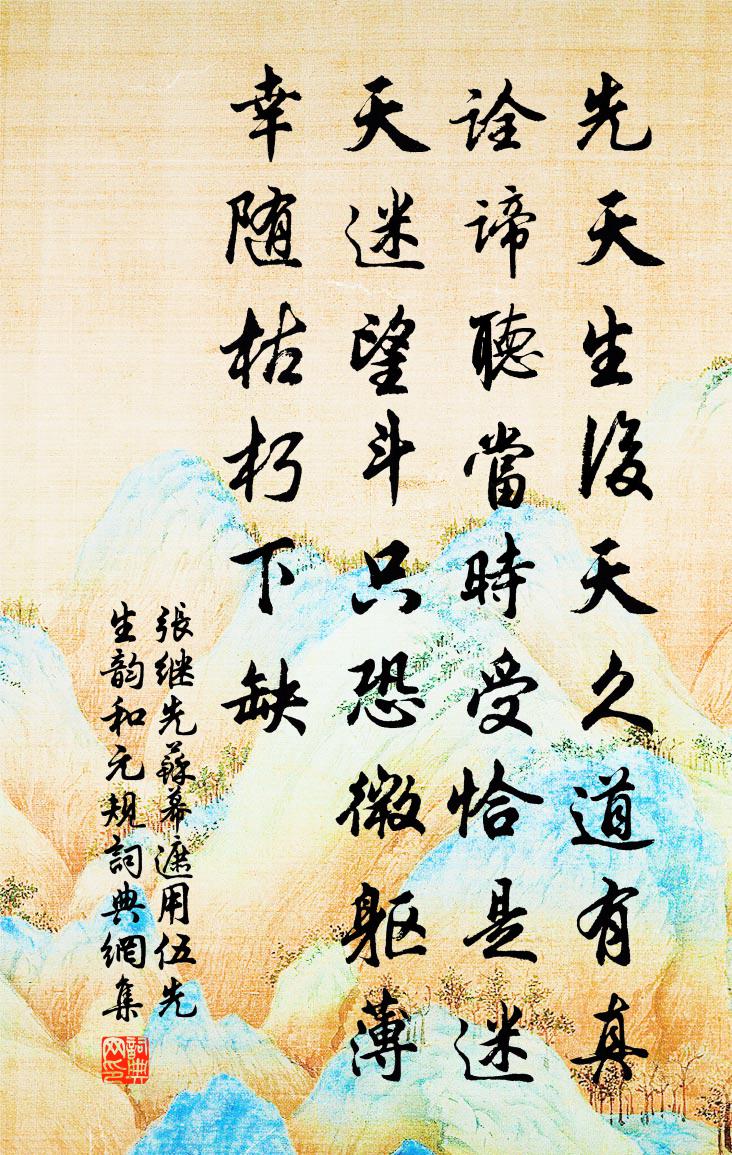 先天生後天久道有真
詮諦聽當時受恰是迷
天迷望斗只恐微躯薄
幸随枯朽下缺
張継先蘇幕遮用伍先
生韵和元規詞典網集
詞典
网印